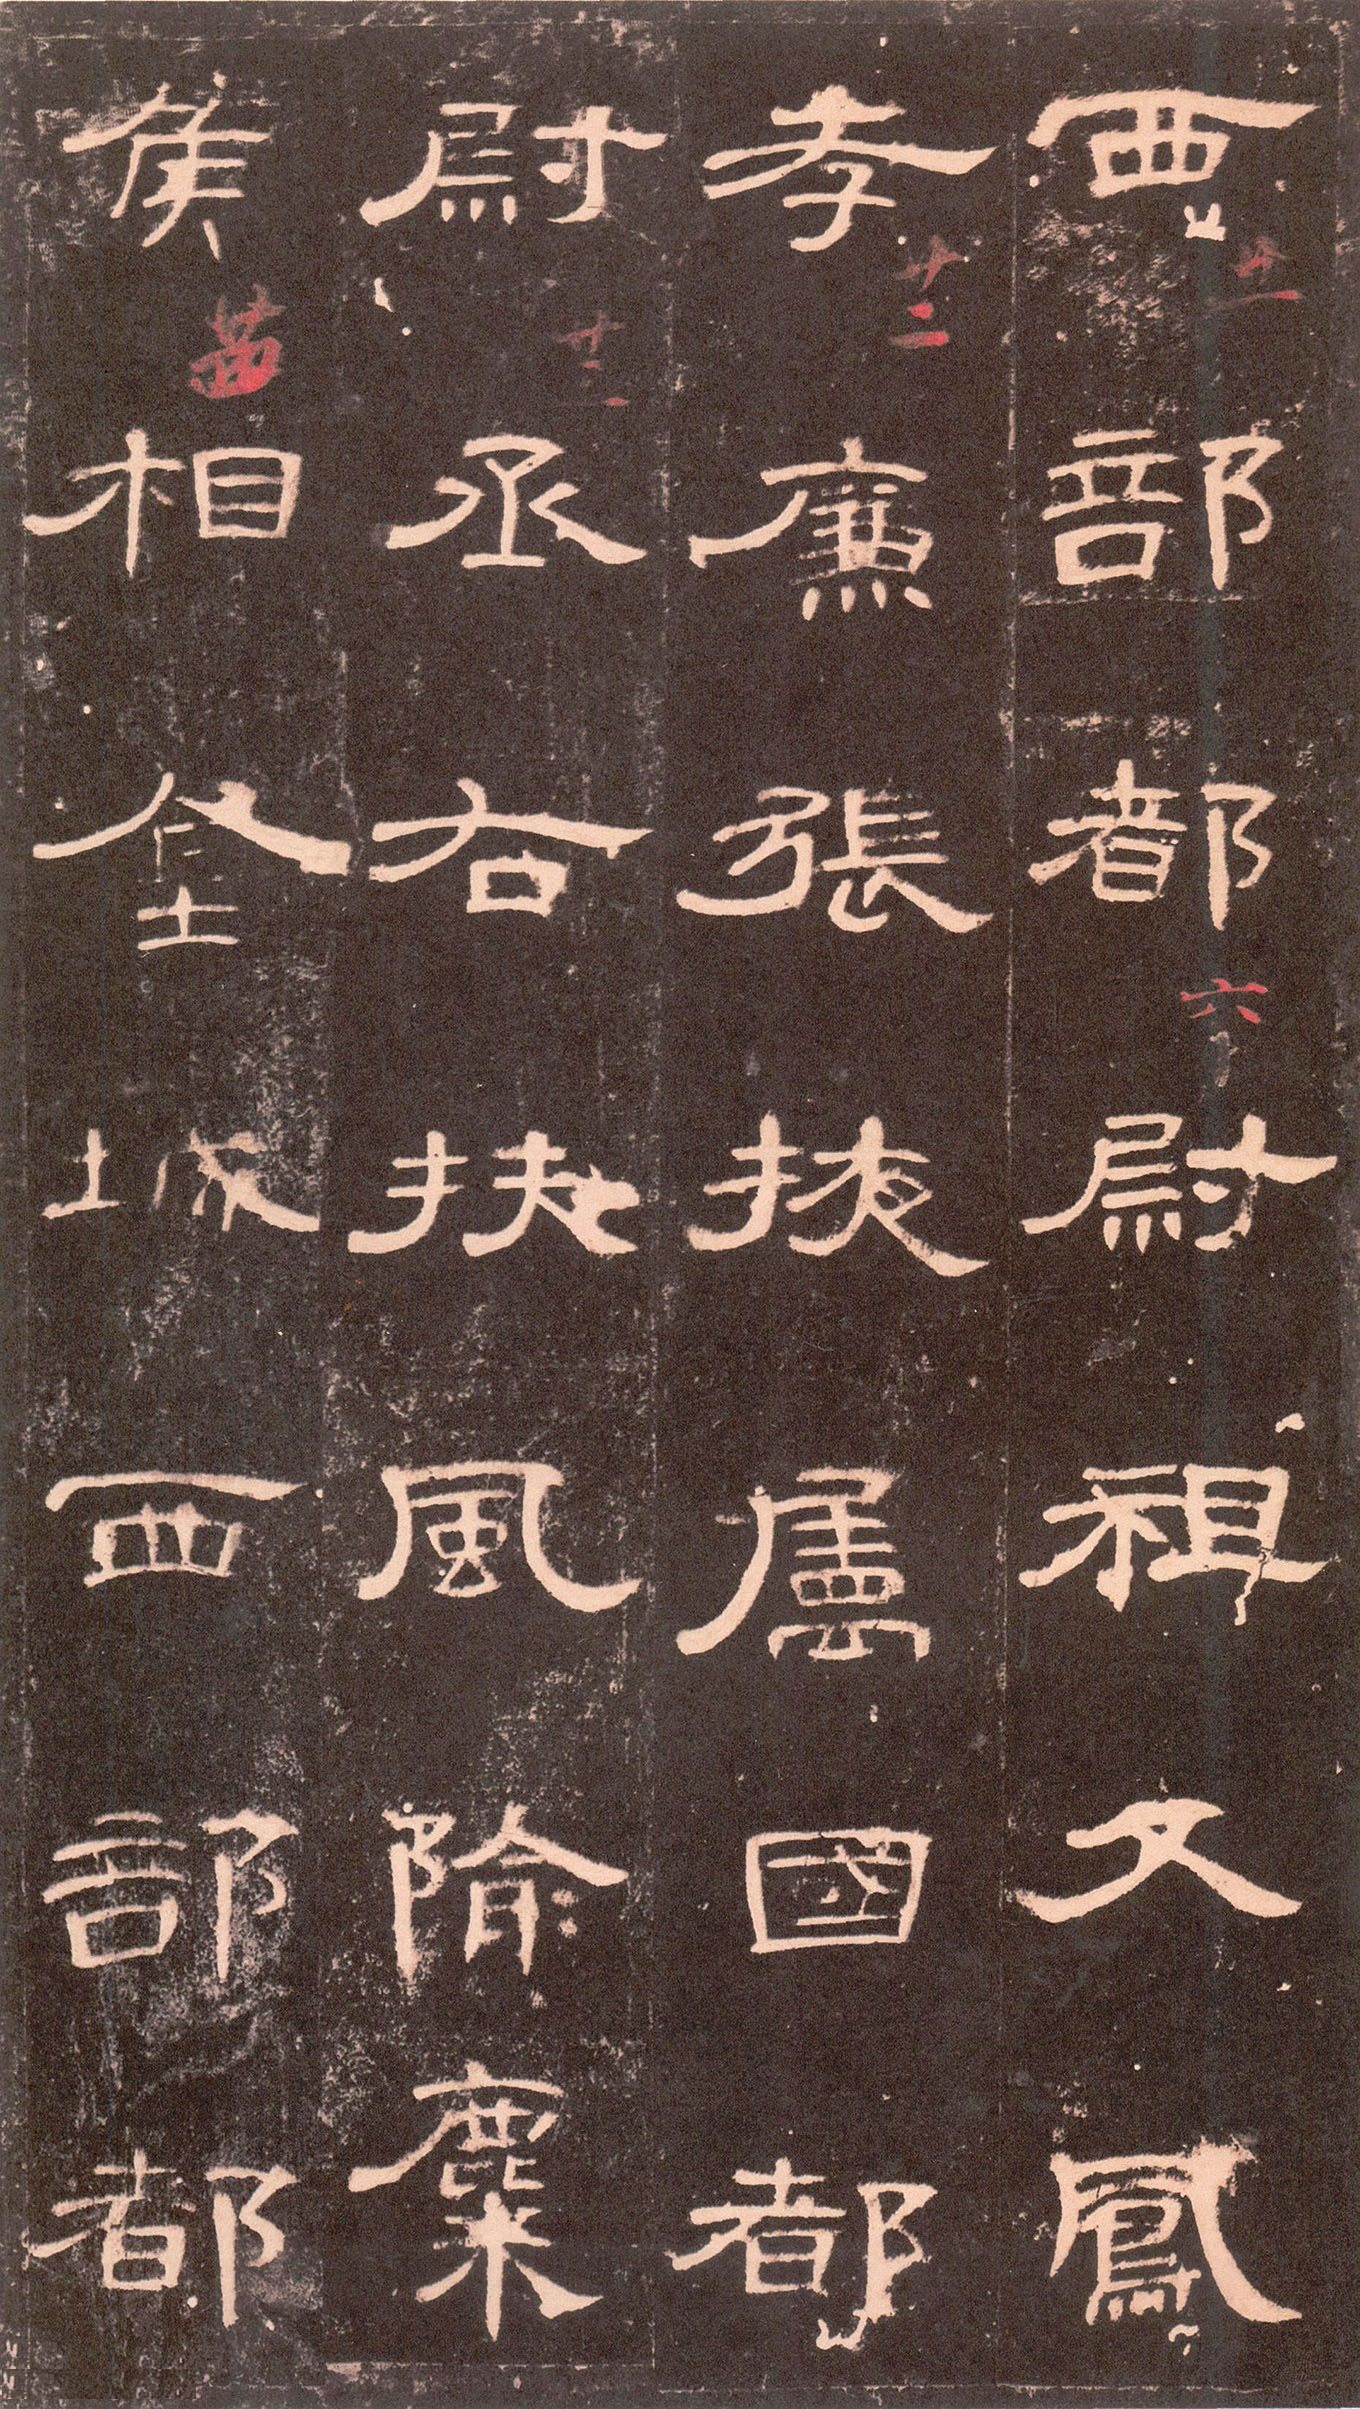 西部都尉祖父鳳
孝廉張掖屬國都
尉丞右扶風隃麋
侯相金城西部都
六